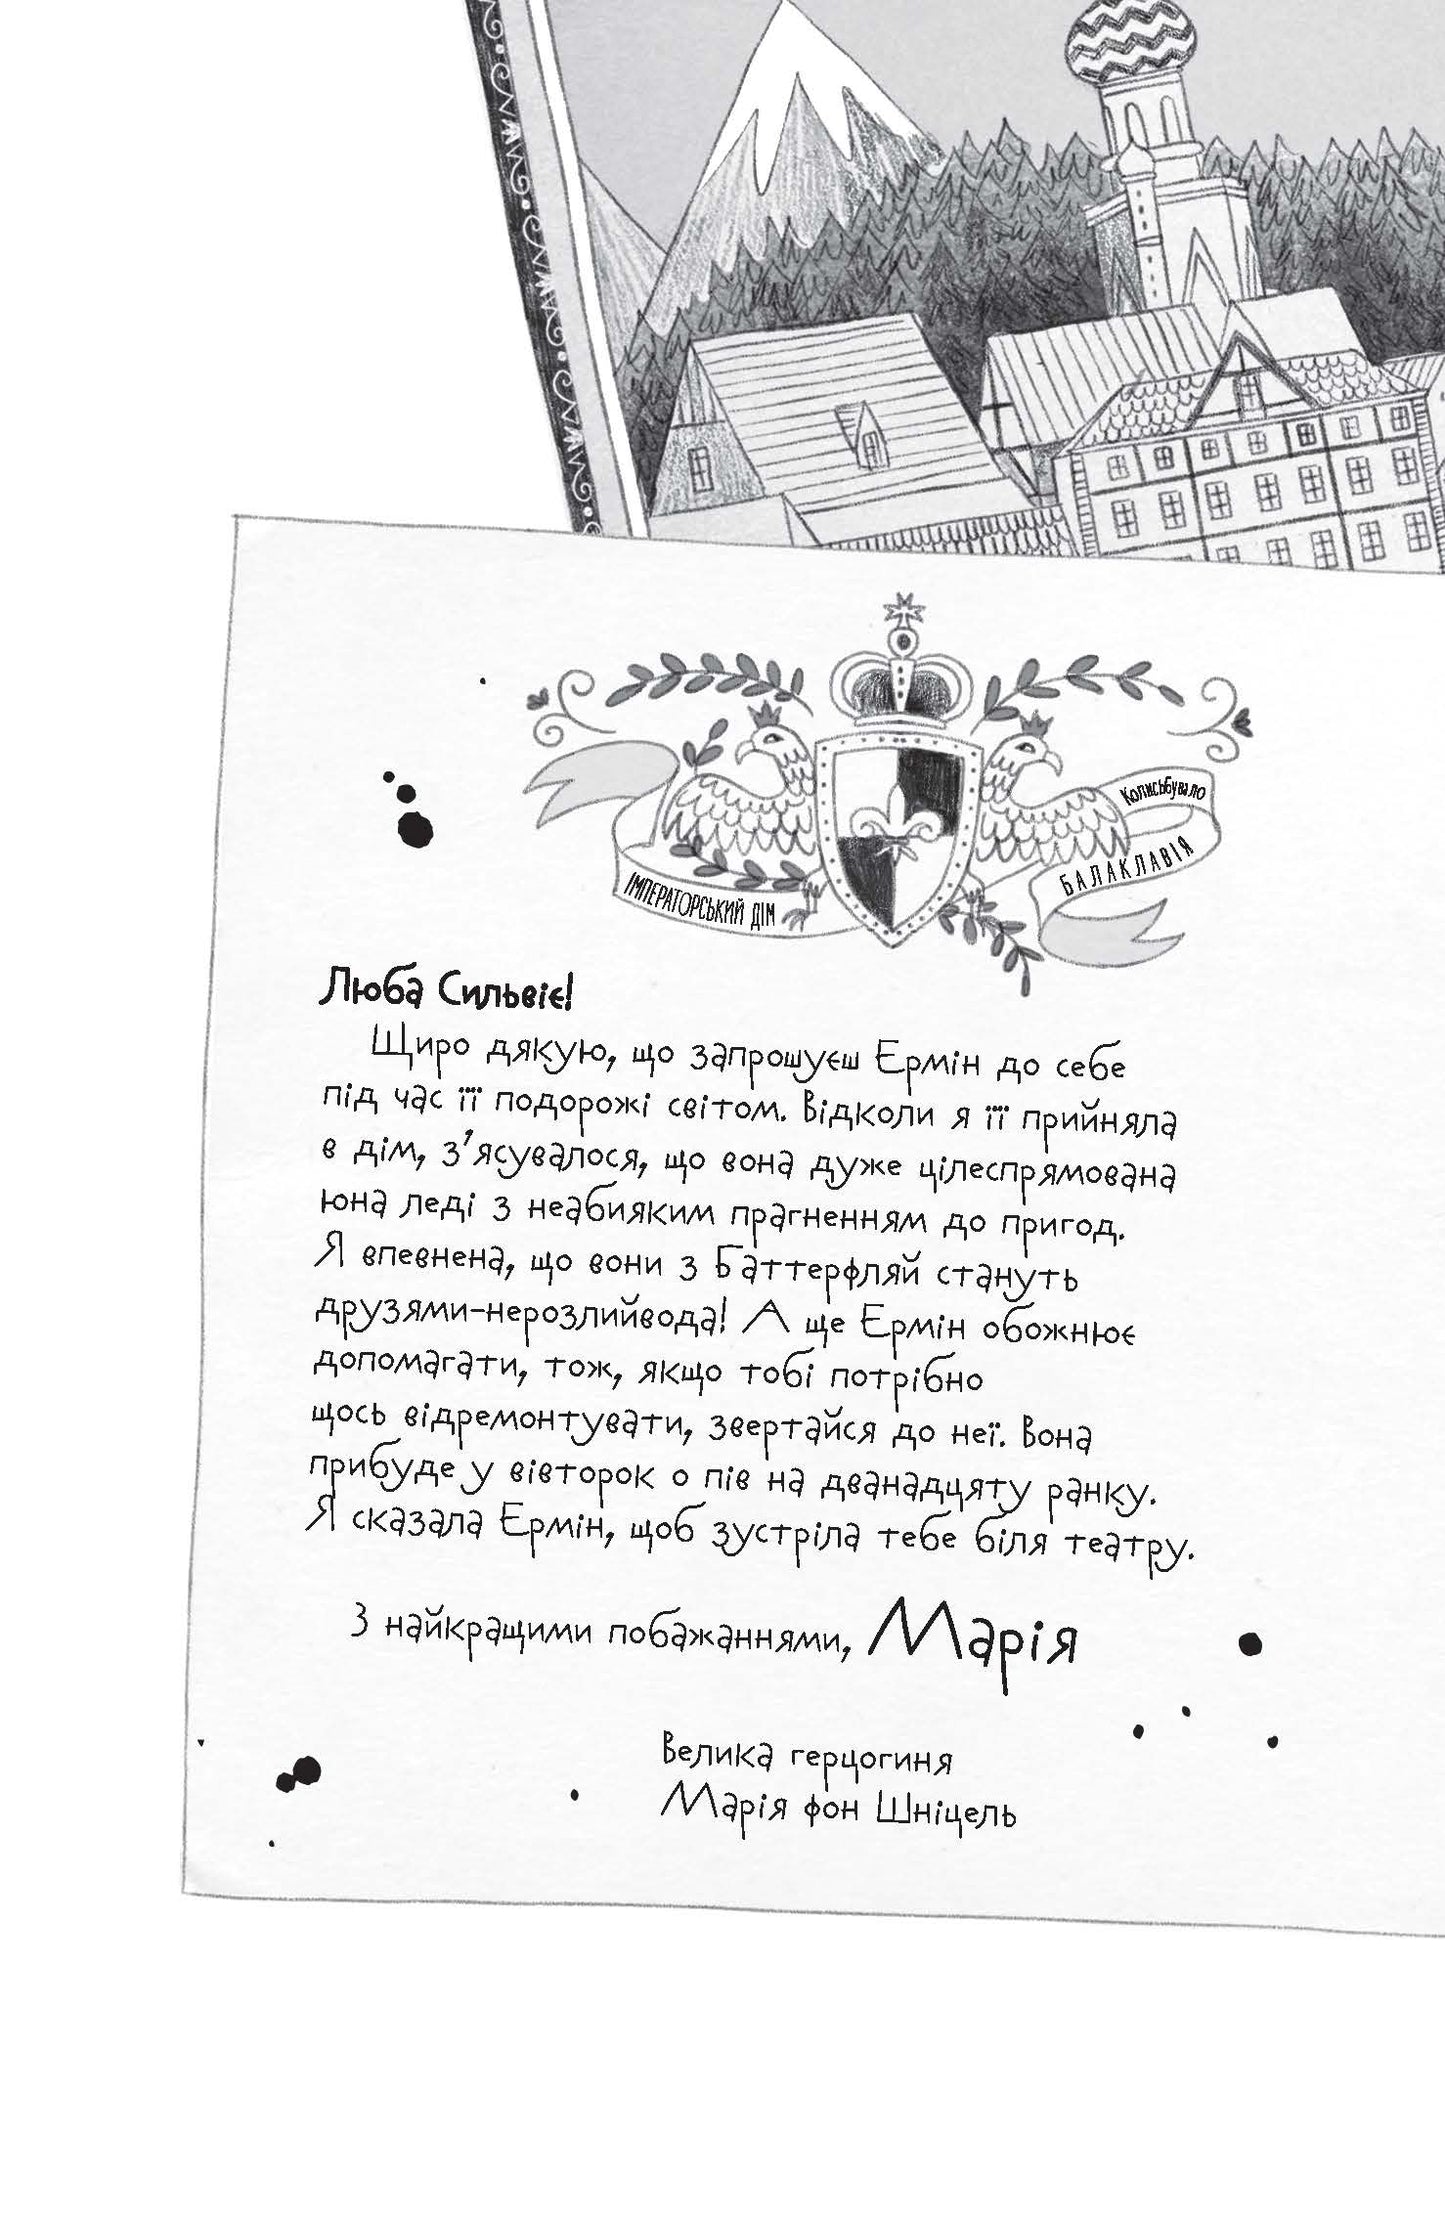 Колисьбувало
БАЛАКЛАВІЯ
ІМПЕРАТОРСЬКИЙ ДІМ
Люба Сильвіє!
Щиро дякую, що запрошуєш Ермін до себе
під час її подорожі світом. Відколи я її прийняла
в дім, з’ясувалося, що вона дуже цілеспрямована
юна леді з неабияким прагненням до пригод.
Я впевнена, що вони з Баттерфляй стануть
друзями-нерозлийвода! А ще Ермін обожнює
допомагати, тож, якщо тобі потрібно
щось відремонтувати, звертайся до неї. Вона
прибуде у вівторок о пів на дванадцяту ранку.
Я сказала Ермін, щоб зустріла тебе біля театру.
З найкращими побажаннями, Марія
Велика герцогиня
Марія фон Шніцель